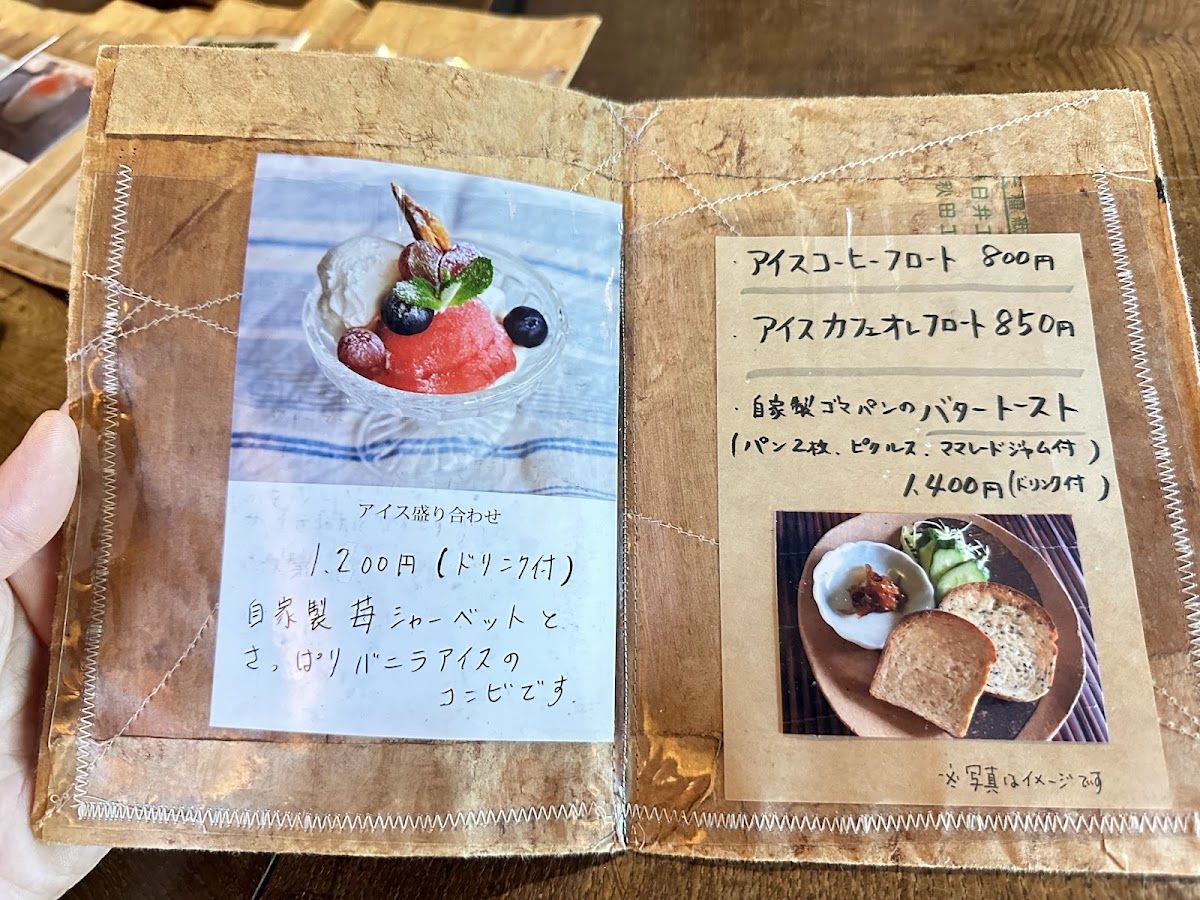 アイス盛り合わせ
1,200円(ドリンク付)
自家製 苺シャーベットと
さっぱりバニラアイスの
コンビです.
・アイスコーヒーフロート 800円
・アイスカフェオレフロート 850円
・自家製ゴマパンのバタートースト
(パン2枚、ピクルス、ママレードジャム付)
1,400円(ドリンク付)
※写真はイメージです